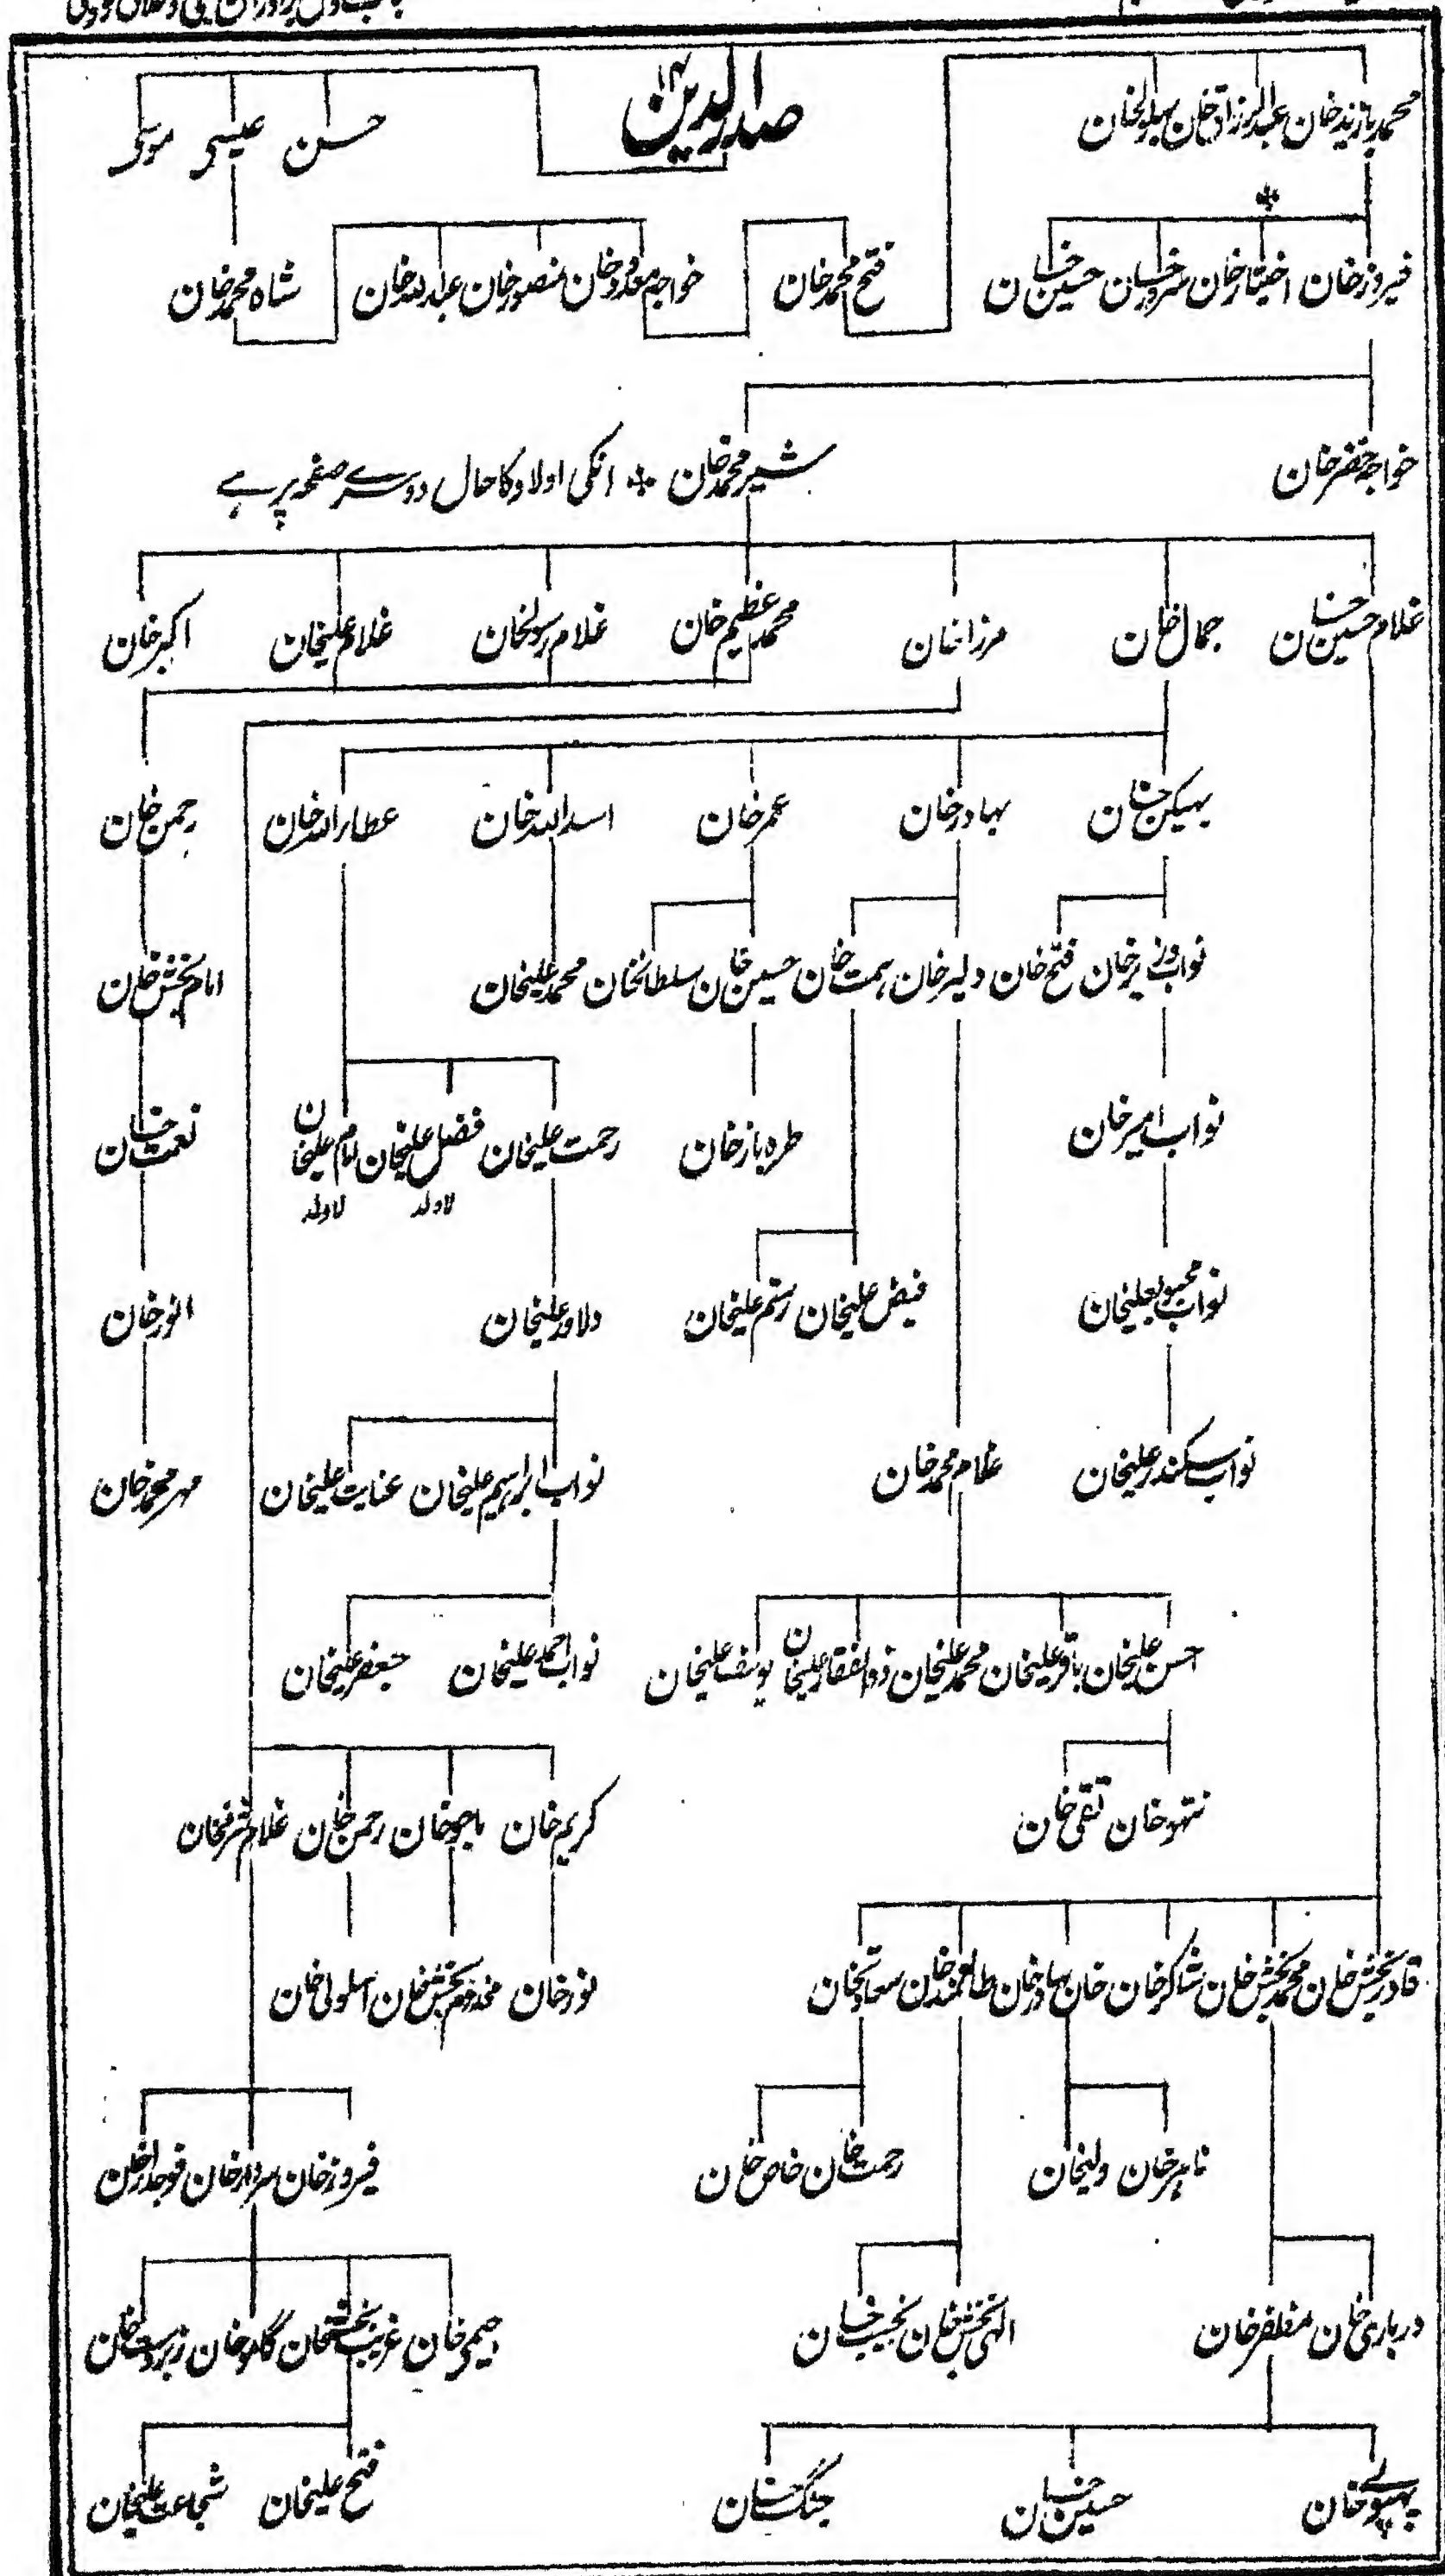 محمد بازید خان عبدالرزاق خان بہلولخان
صدرالدین ۱۴
حسن عیسی موسی
فیروز خان اختیار خان سرور خان حسین خان
فتح محمد خان
خواجہ معدود خان منصور خان عبداللہ خان
شاہ محمد خان
خواجہ خضر خان
شیر محمد خان ؞ انکی اولاد کا حال دوسرے صفحہ پر ہے
غلام حسین خان جمال خان مرزا خان محمد عظیم خان غلام رسولخان غلام علیخان اکبر خان
بہیکن خان بہادر خان عمر خان اسد اللہ خان عطاراللہ خان رحمن خان
نواب وزیر خان فتح خان دلیر خان ہمت خان حسین خان سلطانخان محمد علیخان امام بخش خان
نواب امیر خان طرہ باز خان رحمت علیخان فضل علیخان امام علیخان نعمت خان
لاولد لاولد
نواب محبوب علیخان فیض علیخان رستم علیخان دلاور علیخان انور خان
نواب سکندر علیخان غلام محمد خان نواب ابراہیم علیخان عنایت علیخان مہر محمد خان
احسن علیخان باقر علیخان محمد علیخان ذوالفقار علیخان یوسف علیخان نواب احمد علیخان جعفر علیخان
نتہو خان تقی خان کریم خان باجو خان رحمن خان غلام شرفخان
قادر بخش خان محمد بخش خان شاکر خان خان بہادر خان طالعمند خان سعادتخان نور خان مخدوم بخش خان اسلولی خان
ناہر خان ولیخان رحمت خان خاص خان فیروز خان سردار خان فوجدار خان
درباری خان مظفر خان الہی بخش خان نجیب خان رحیمی خان غریب بخشخان گلو خان زبردست خان
حسین خان جنگ خان فتح علیخان شجاعت علیخان